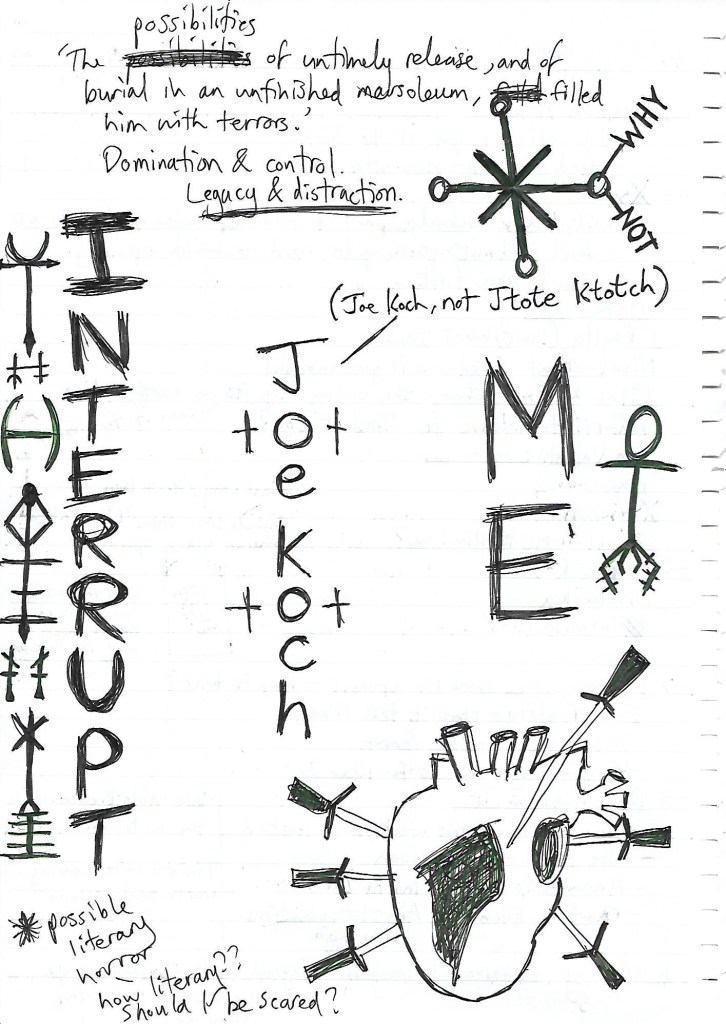 possibilities
'The possibilities of untimely release, and of
burial in an unfinished mausoleum, filled
him with terrors.'
Domination & control.
Legacy & distraction.
WHY
NOT
(Joe Koch, not Jtote Ktotch)
INTERRUPT
Joe Koch
ME
possible
literary
horror
how literary??
should I be scared?